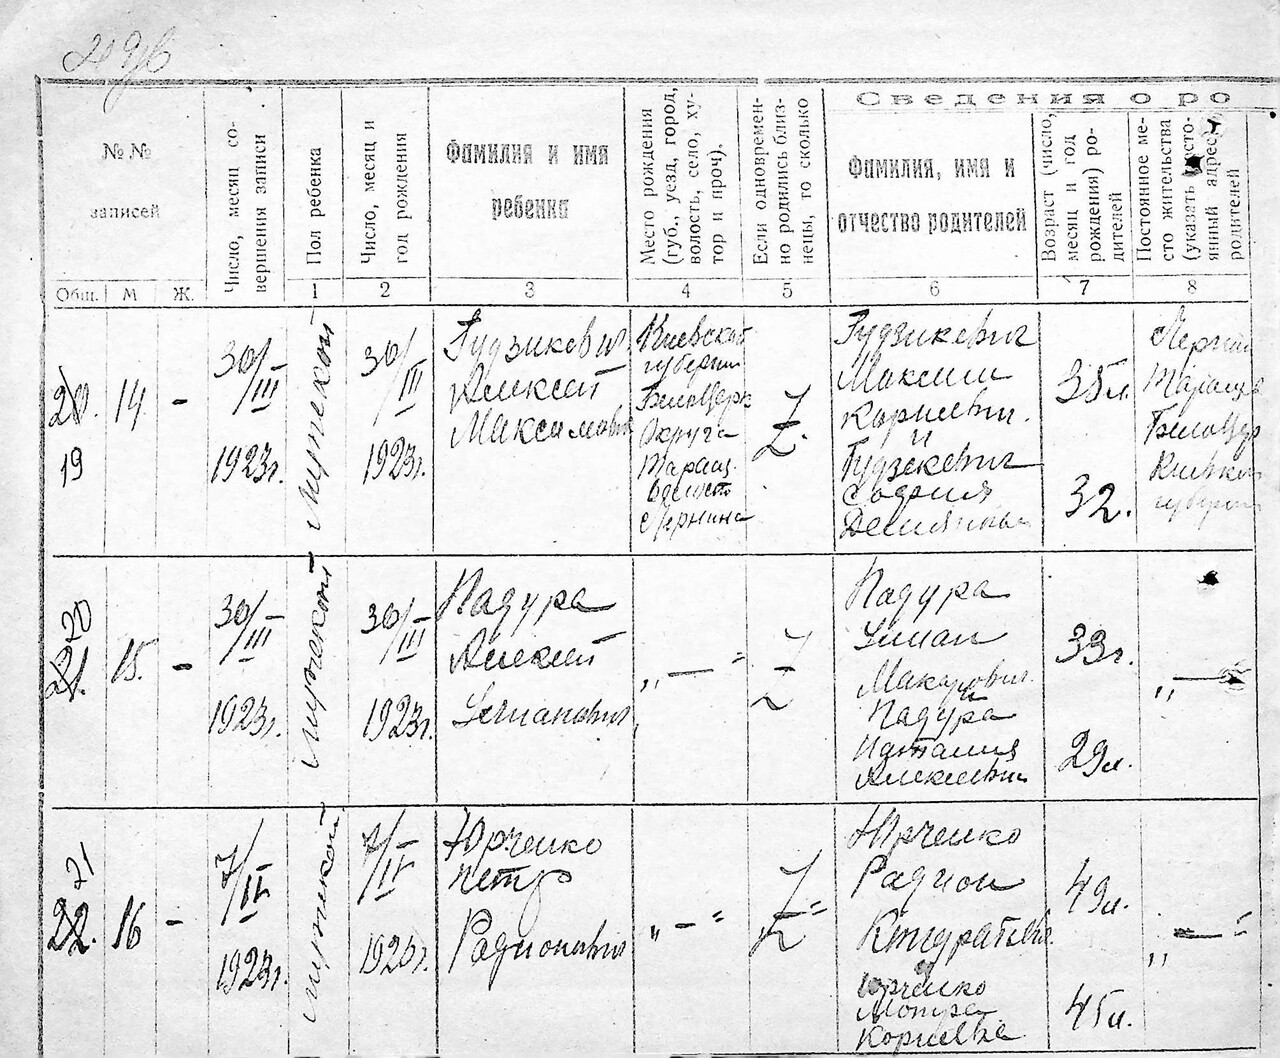 Сведения о ро
№ №
записей
Общ.
М
Ж.
Число, месяц со-
вершения записи
Пол ребенка
1
Число, месяц и
год рождения
2
Фамилия и имя
ребенка
3
Место рождения
(губ., уезд, город,
волость, село, ху-
тор и проч.).
4
Если одновремен-
но родились близ-
нецы, то сколько
5
Фамилия, имя и
отчество родителей
6
Возраст (число,
месяц и год
рождения) ро-
дителей
7
Постоянное ме-
сто жительства
(указать
адрес)
родителей
8
20.
19
14
-
30/III
1923г.
Мужской
30/III
1923г.
Гудзикевич
Алексей
Максимович
Киевской
губернии
БелоЦерк
Округа
Таращ.
Z
Гудзикевич
Максим
Корнеевич.
и
Гудзикевич
София
35л.
32.
Таращ
БелоЦер
20
21.
15.
-
30/III
1923г.
Мужской
30/III
1923г.
Падура
Алексей
„ — "
Z
Падура
Макарович
и
Падура
Наталия
Алексеевна
33г.
29л.
„ — "
21
22.
16
-
7/IV
1923г.
мужской
7/IV
1923г.
Юрченко
Петр
Радионович
„ — "
Z "
Юрченко
Радион
Кондратьевич
и
Юрченко
Мотря
Корнеевна
49л.
45л.
„ — "